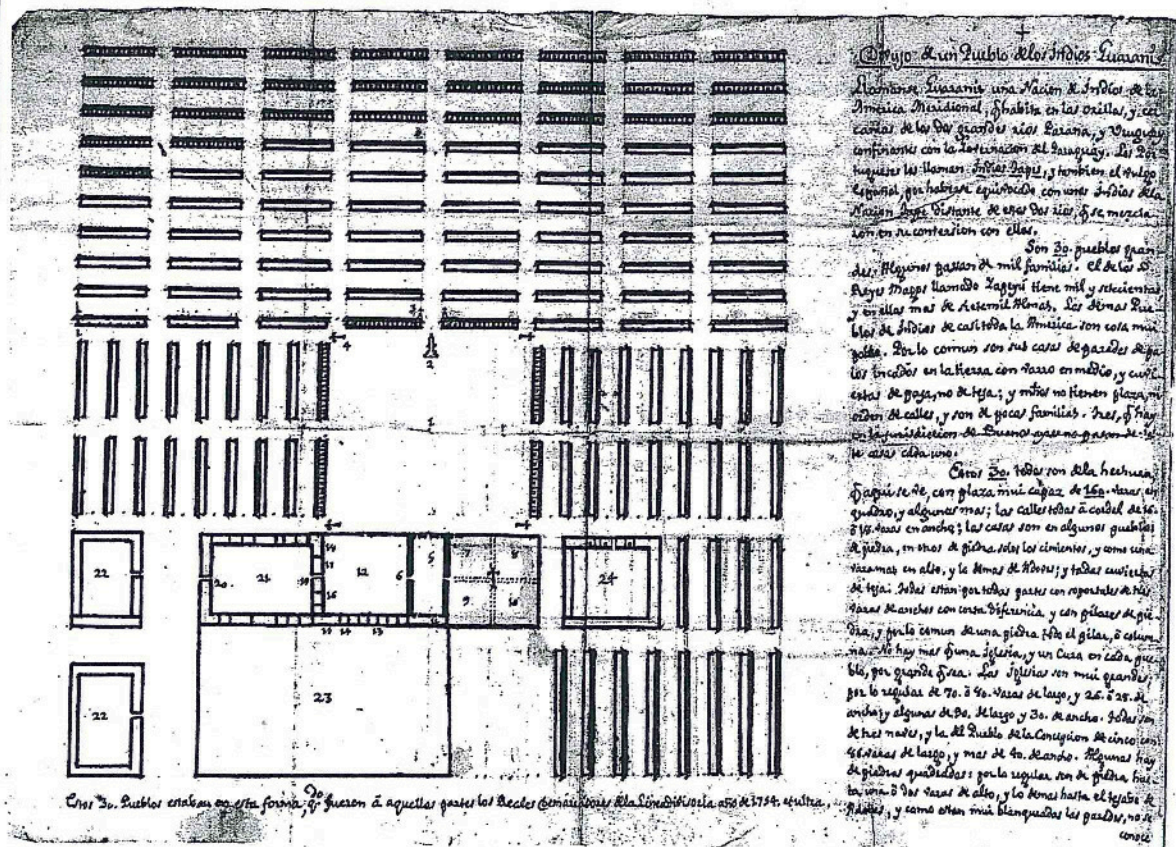 Dibujo de un Pueblo de los Indios Guaranis
Llamanse Guaranis una Nacion de Indios de la
America Meridional, q habita en las orillas, y cer
canias de los dos grandes rios Parana, y Uruguay
confinantes con la Governacion del Paraguay. Los Por
tugueses les llaman Indios Tapes, y tambien el vulgo
español, por haberse equivocado con unos Indios de la
Nacion Tape distante de esos dos rios, q se mezcla
ron en su conversion con ellos.
Son 30. pueblos gran
des. Algunos passan de mil familias. El de los S.
Reyes Magos llamado Yapeyu tiene mil y setecientas
y en ellas mas de siete mil Almas. Los demas Pue
blos de Indios de casi toda la America son cosa mui
pobre. Por lo comun son sus casas de paredes de pa
los incados en la tierra con varro en medio, y cuvi
ertas de paja, no de teja; y no tienen plaza, ni
orden de calles, y son de pocas familias. Tres, q hay
en la jurisdiccion de Buenos ayres no pasan de
casas cada uno.
Estos 30. todos son de la hechura,
q aqui se ve, con plaza mui capaz de 150. varas, en
quadro, y algunas mas; las calles todas à cordel de 16.
ò 18. varas en ancho; las casas son en algunos pueblos
de piedra, en otros de piedra solos los cimientos, y como una
vara mas en alto, y lo demas de Adoves; y todas cuviertas
de teja. Todas estan por todas partes con soportales de tres
varas de anchos con corta diferencia, y con pilares de pie
dra, y por lo comun de una piedra todo el pilar, ò colum
na. No hay mas q una Iglesia, y un Cura en cada pue
blo, por grande q sea. Las Iglesias son mui grandes;
por lo regular de 70. ò 80. varas de largo, y 26. ò 28. de
ancho; y algunas de 90. de largo y 30. de ancho. Todas son
de tres naves, y la del Pueblo de la Concepcion de cinco con
varas de largo, y mas de 40. de ancho. Algunas hay
de piedras quadradas: por lo regular son de piedra has
ta una ò dos varas de alto, y lo demas hasta el tejado de
Adoves, y como estan mui blanqueadas las paredes, no se
conoce
3
4
2
1
22
20
21
14
11
10
16
12
6
5
7
8
9
10
24
15
14
13
22
23
Estos 30. Pueblos estaban en esta forma, qdo fueron à aquellas partes los Reales Demarcadores de la Linea divisoria año de 1754. et ultra.